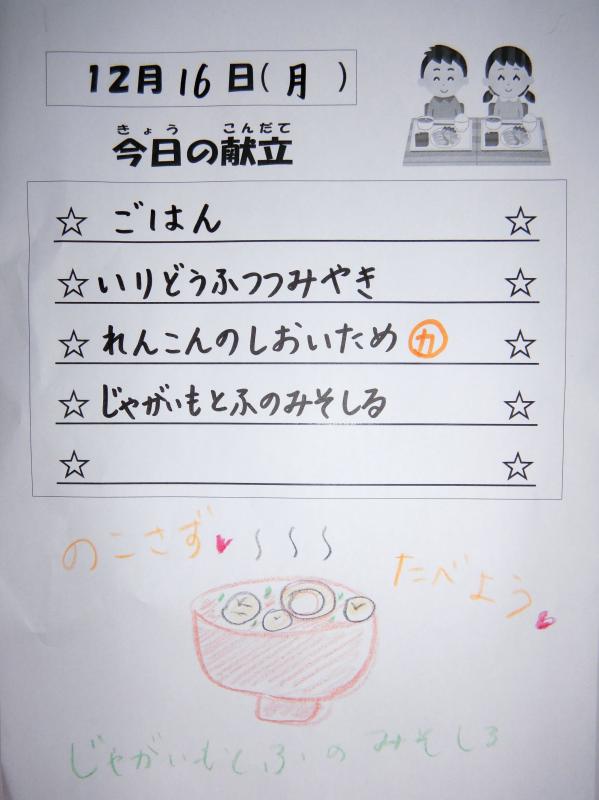 12月16日(月)
きょう こんだて
今日の献立
☆ ごはん ☆
☆ いりどうふつつみやき ☆
☆ れんこんのしおいため カ ☆
☆ じゃがいもとふのみそしる ☆
☆ ☆
のこさず
たべよう
じゃがいもとふのみそしる